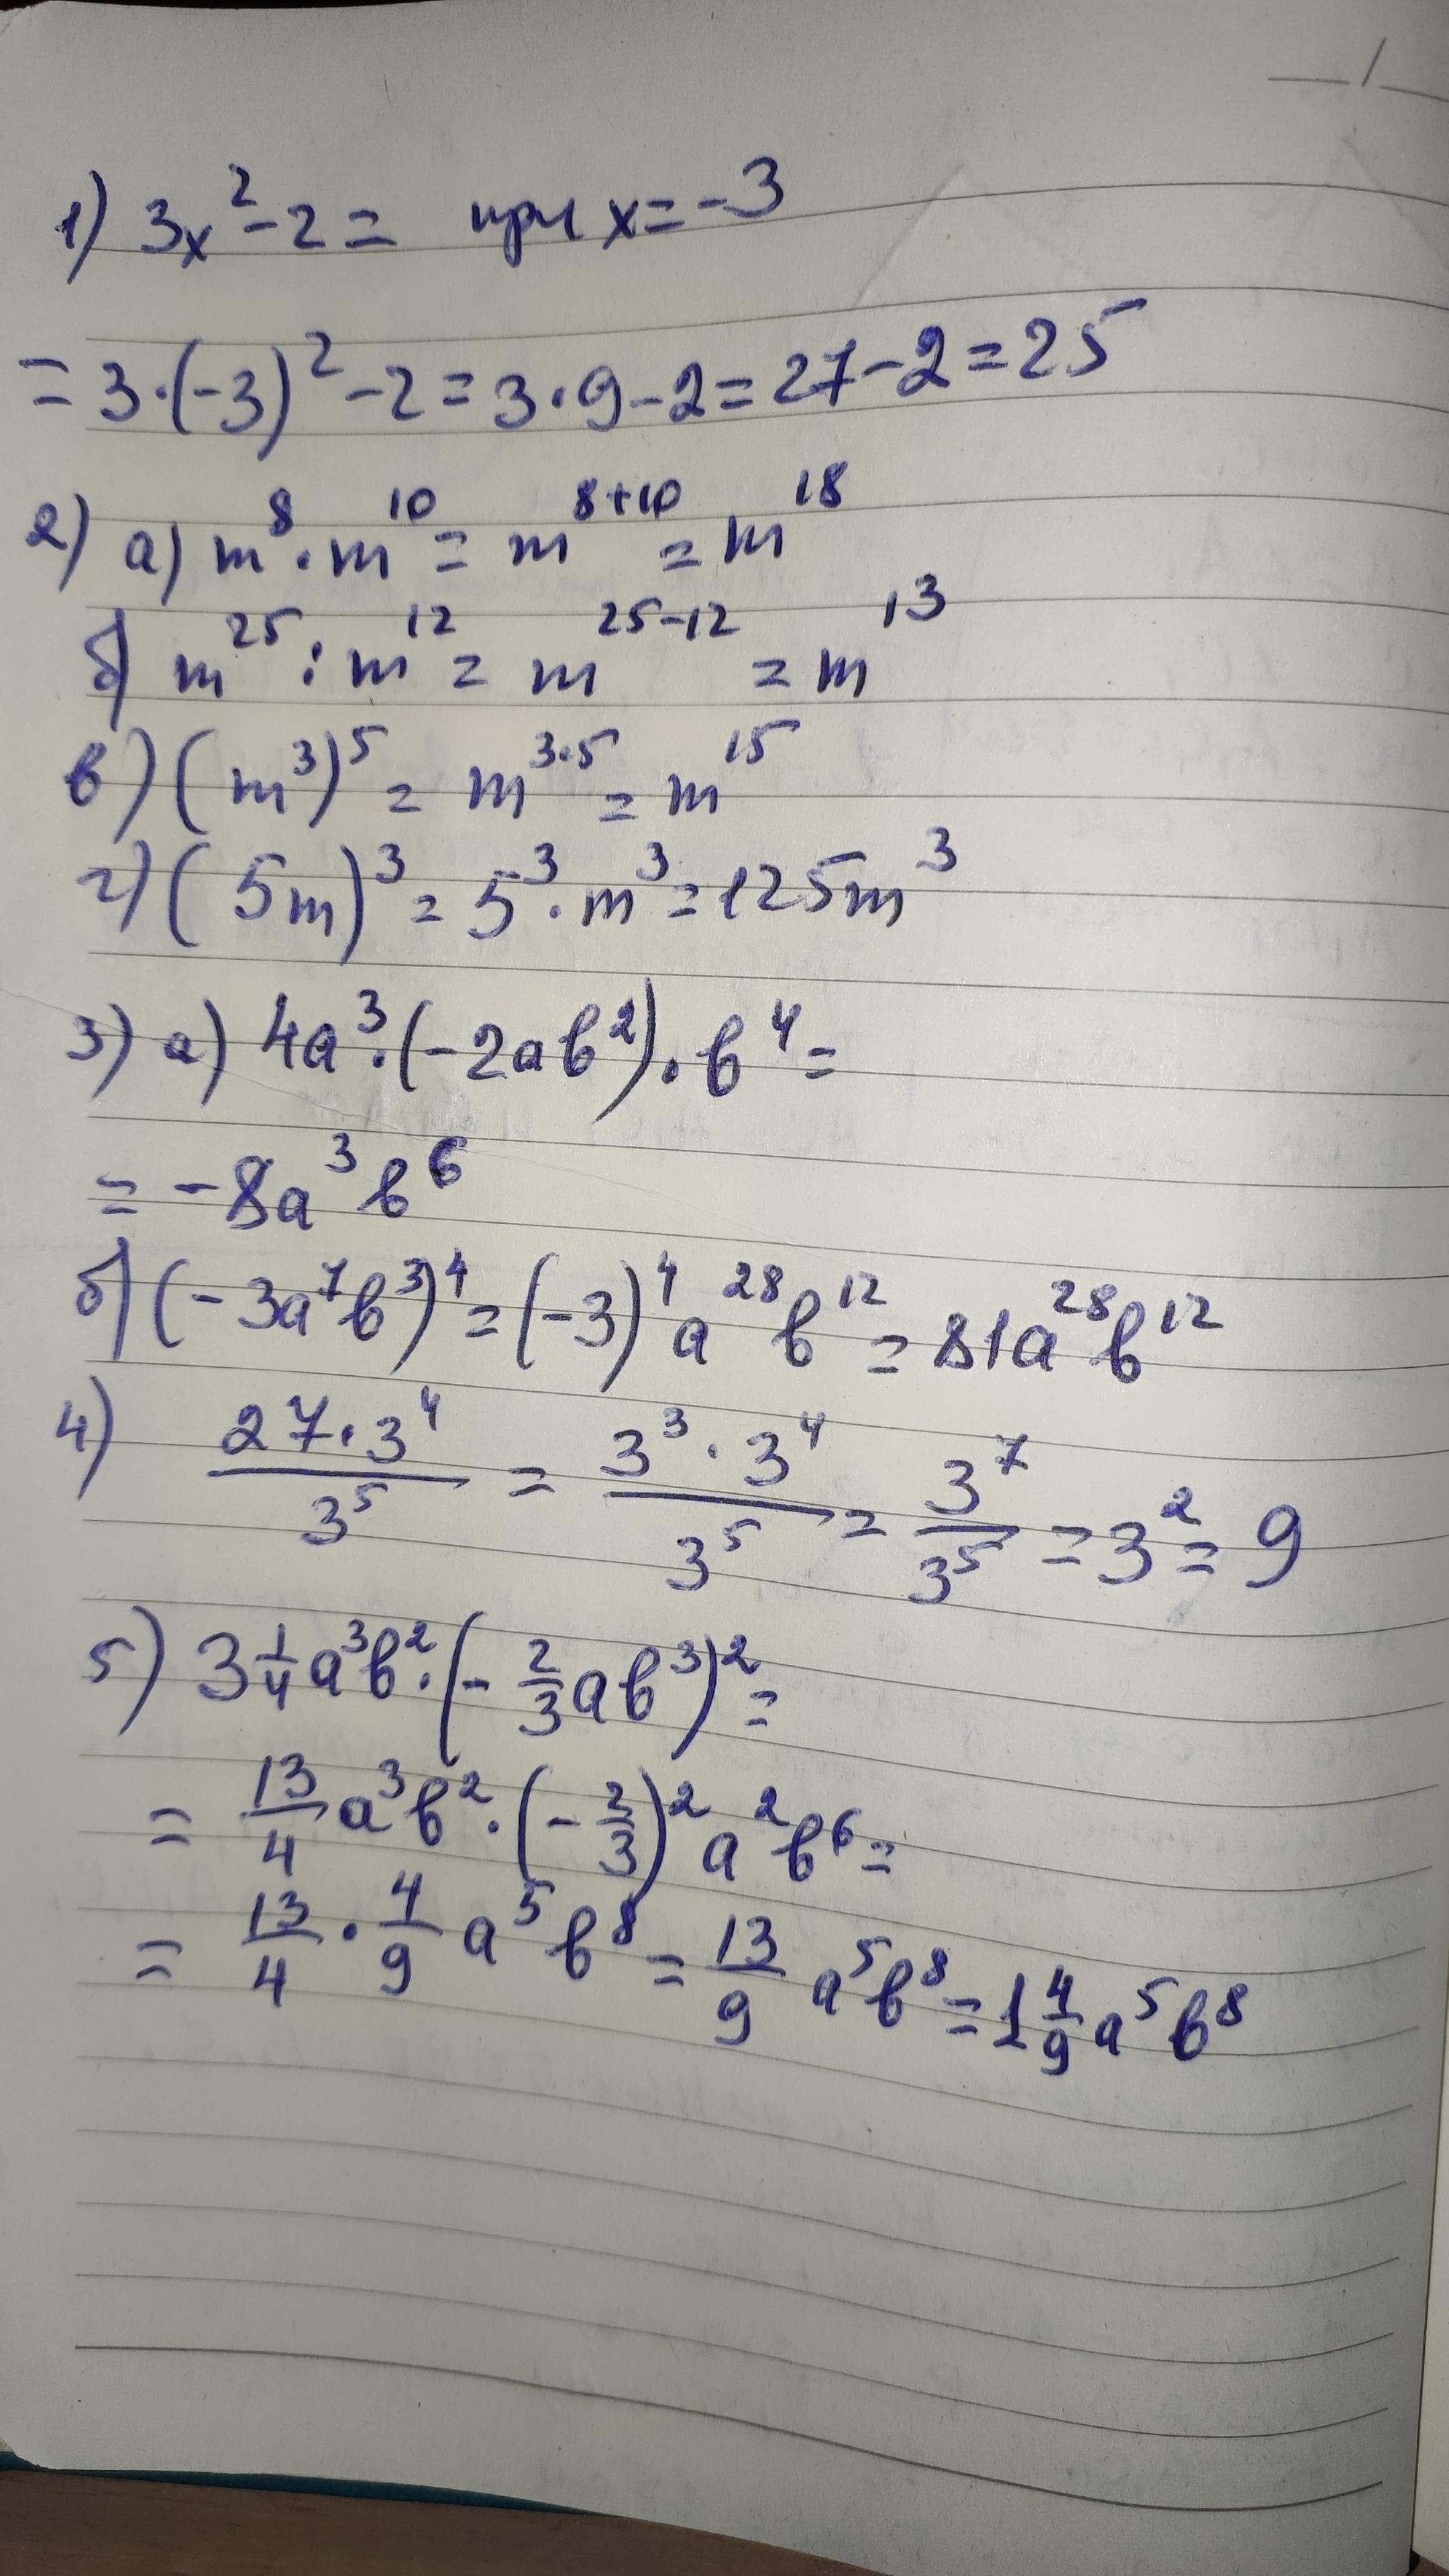 1) 3x² - 2 = при x = -3
= 3·(-3)² - 2 = 3·9 - 2 = 27 - 2 = 25
2) а) m⁸·m¹⁰ = m⁸⁺¹⁰ = m¹⁸
б) m²⁵ : m¹² = m²⁵⁻¹² = m¹³
в) (m³)⁵ = m³·⁵ = m¹⁵
г) (5m)³ = 5³·m³ = 125m³
3) а) 4a³·(-2ab²)·b⁴ =
= -8a³b⁶
б) (-3a⁷b³)⁴ = (-3)⁴a²⁸b¹² = 81a²⁸b¹²
4) 27·3⁴/3⁵ = 3³·3⁴/3⁵ = 3⁷/3⁵ = 3² = 9
5) 3 1/4 a³b²·(-2/3 ab³)² =
= 13/4 a³b²·(-2/3)² a²b⁶ =
= 13/4 · 4/9 a⁵b⁸ = 13/9 a⁵b⁸ = 1 4/9 a⁵b⁸